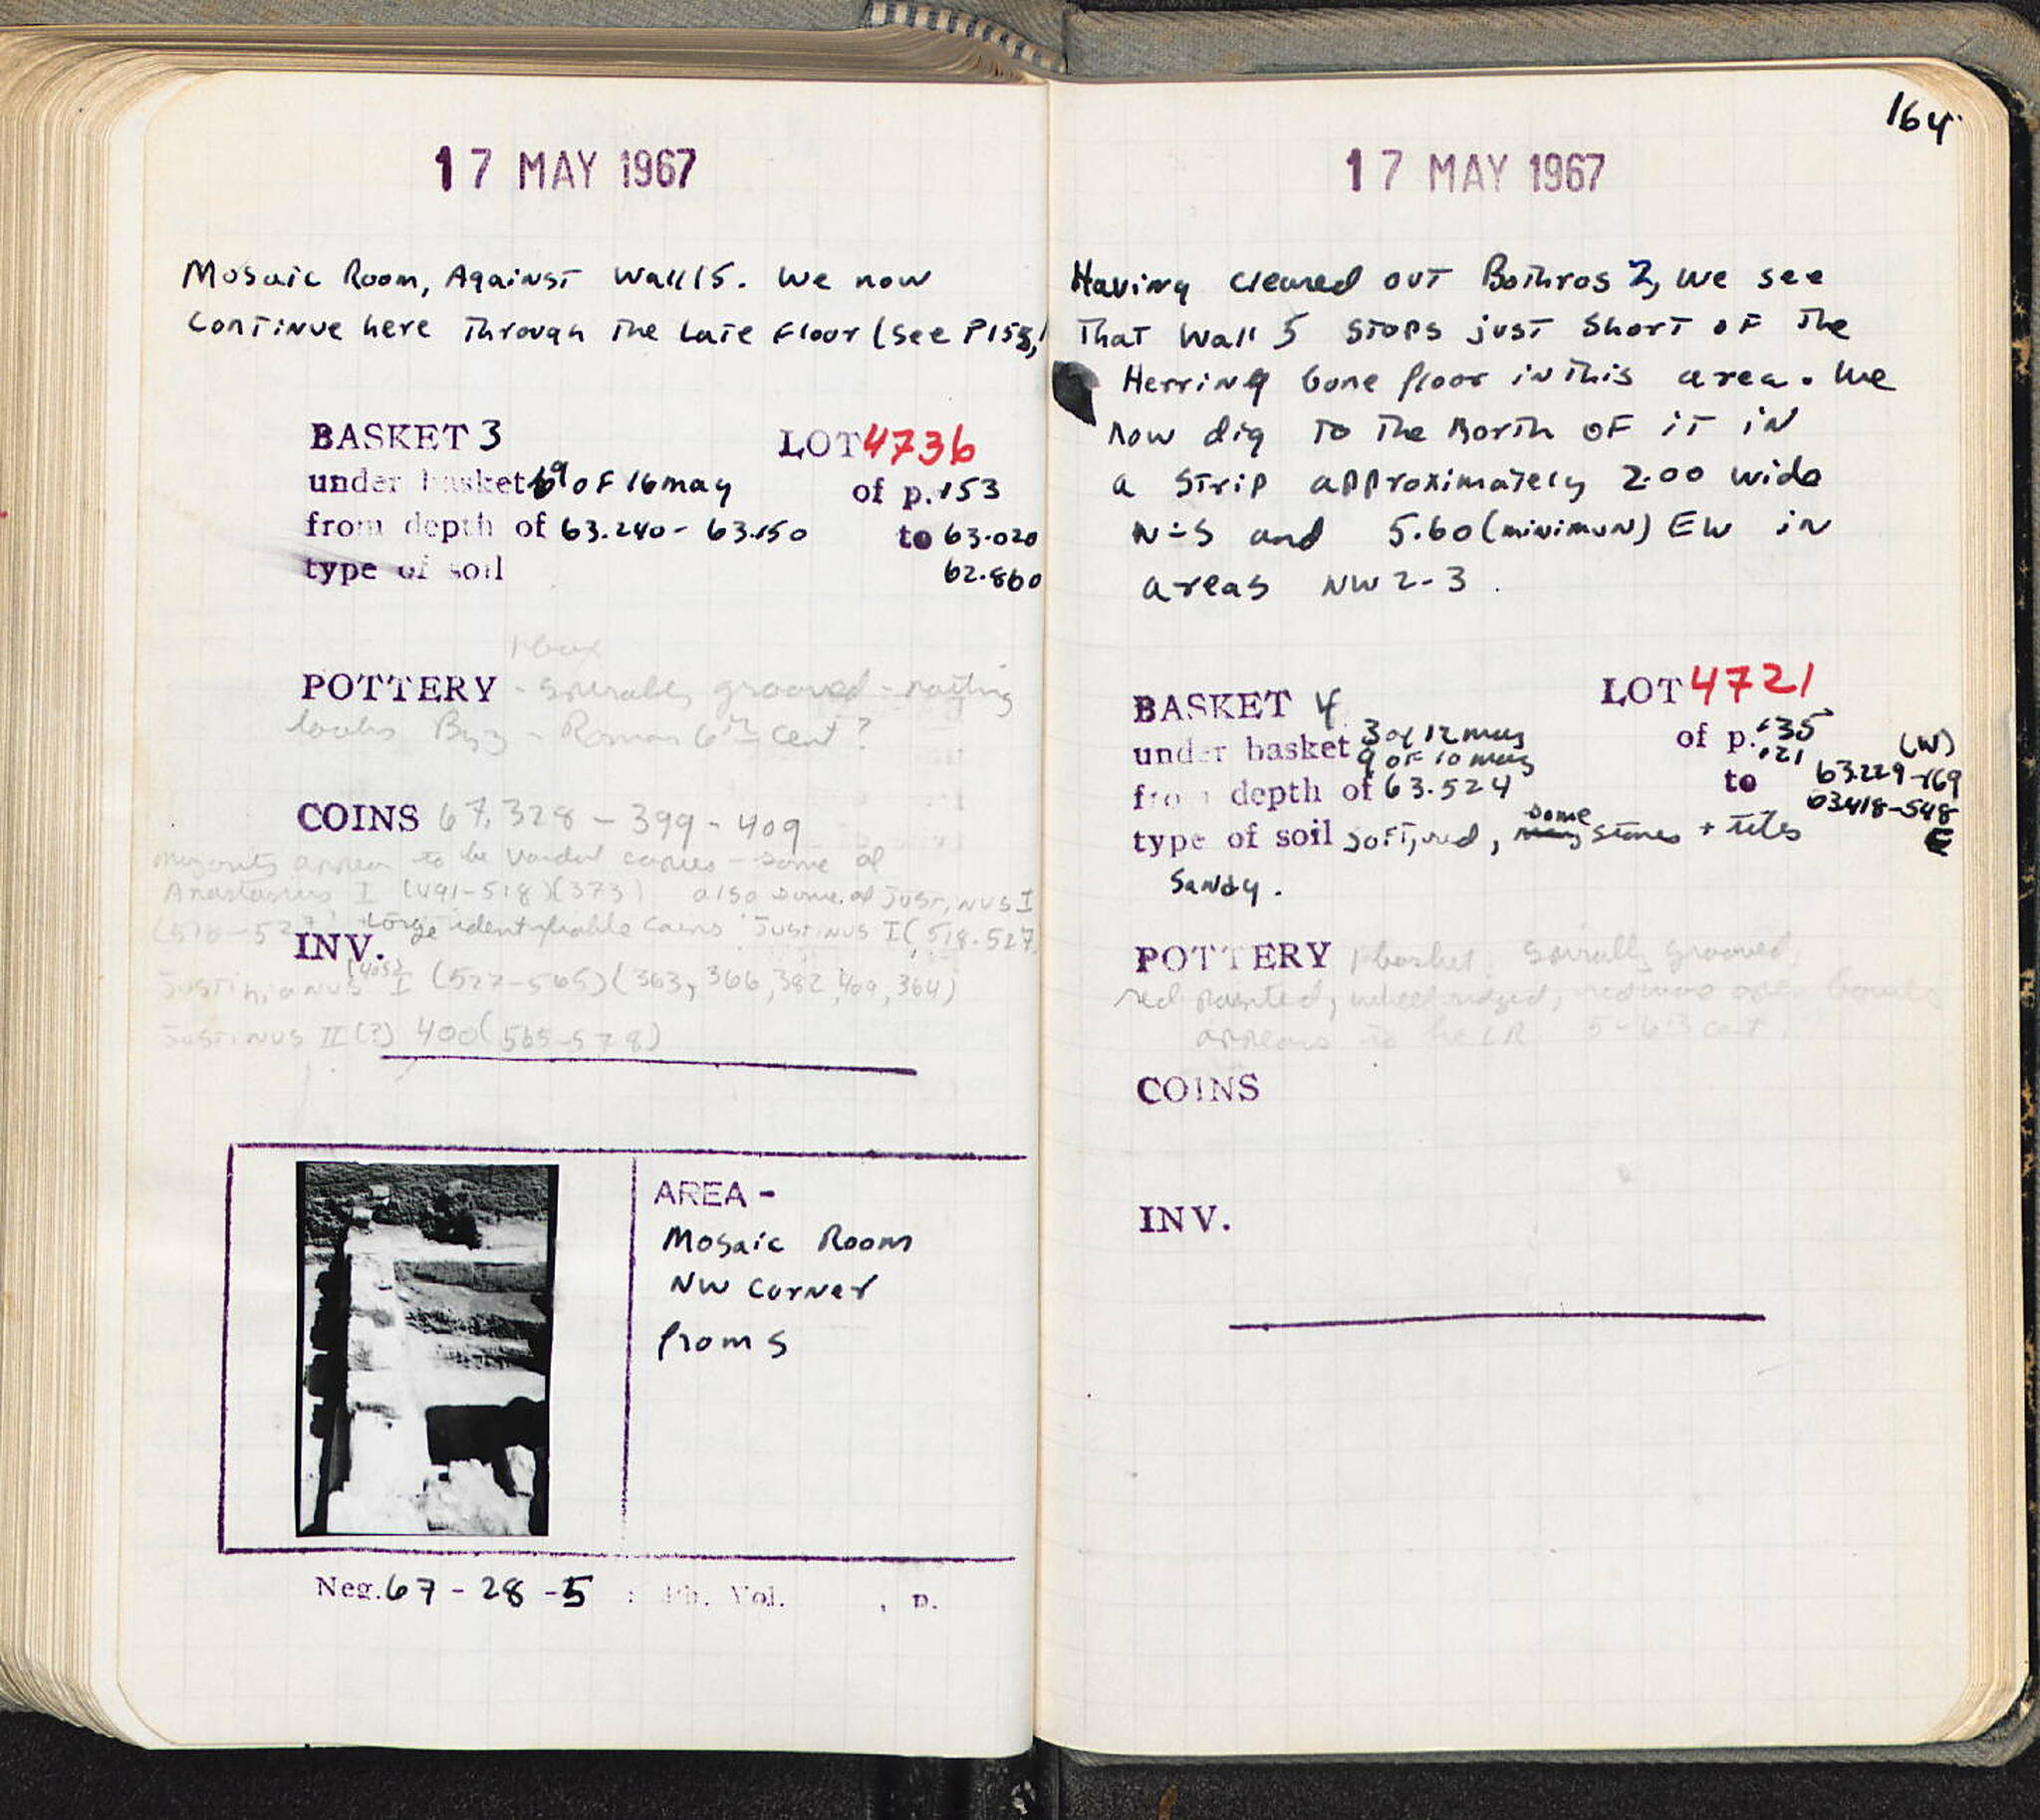 17 MAY 1967
Mosaic Room, Against Wall 15. We now
Continue here Through The Late Floor (See P153,
BASKET 3 LOT 4736
under basket 9 of 16 may of p. 153
from depth of 63.240 - 63.150 to 63.020
type of soil 62.860
1 box
POTTERY - spirally grooved - rooting
looks Byz - Roman 6th cent?
COINS 67.328 - 399 - 409
majority appear to be Vandal copies - some of
Anastasius I (491-518)(373) also some of Justinus I
(518-527) Large identifiable coins Justinus I (518-527,
INV. (405)
Justinianus I (527-565)(363, 366, 382, 409, 364)
Justinus II (?) 400 (565-578)
AREA -
Mosaic Room
NW Corner
from S
Neg. 67 - 28 - 5 : Ph. Vol. , p.
164
17 MAY 1967
Having cleared out Bothros 2, we see
That Wall 5 stops just short of the
Herring bone floor in this area. We
now dig to the North of it in
a strip approximately 2.00 wide
N-S and 5.60 (minimun) EW in
areas NW 2-3.
BASKET 4 LOT 4721
under basket 3 of 12 may of p. 135 (W)
9 of 10 may 121
from depth of 63.524 to 63.229-169
63.418-548
type of soil soft, red, some stones + tiles E
Sandy.
POTTERY 1 basket. Spirally grooved,
red painted, wheelridged, open bowls
appears to be LR 5-6th cent.
COINS
INV.